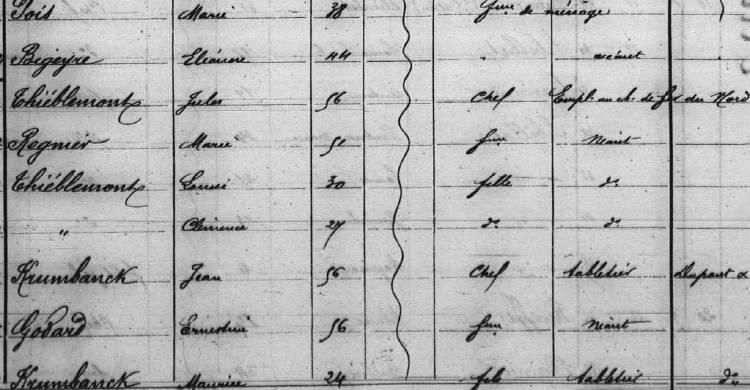 Sois Marie 38 fme de ménage
Bigeyre Eléonore 44 " néant
Thiéblemont Jules 56 Chef Empl. au ch. de fer du Nord
Regnier Marie 51 fme Néant
Thiéblemont Louise 30 fille do
" Clémence 27 do do
Krumbanck Jean 56 Chef tabletier Dupont &
Godard Ernestine 56 fme Néant
Krumbanck Maurice 24 fils tabletier do